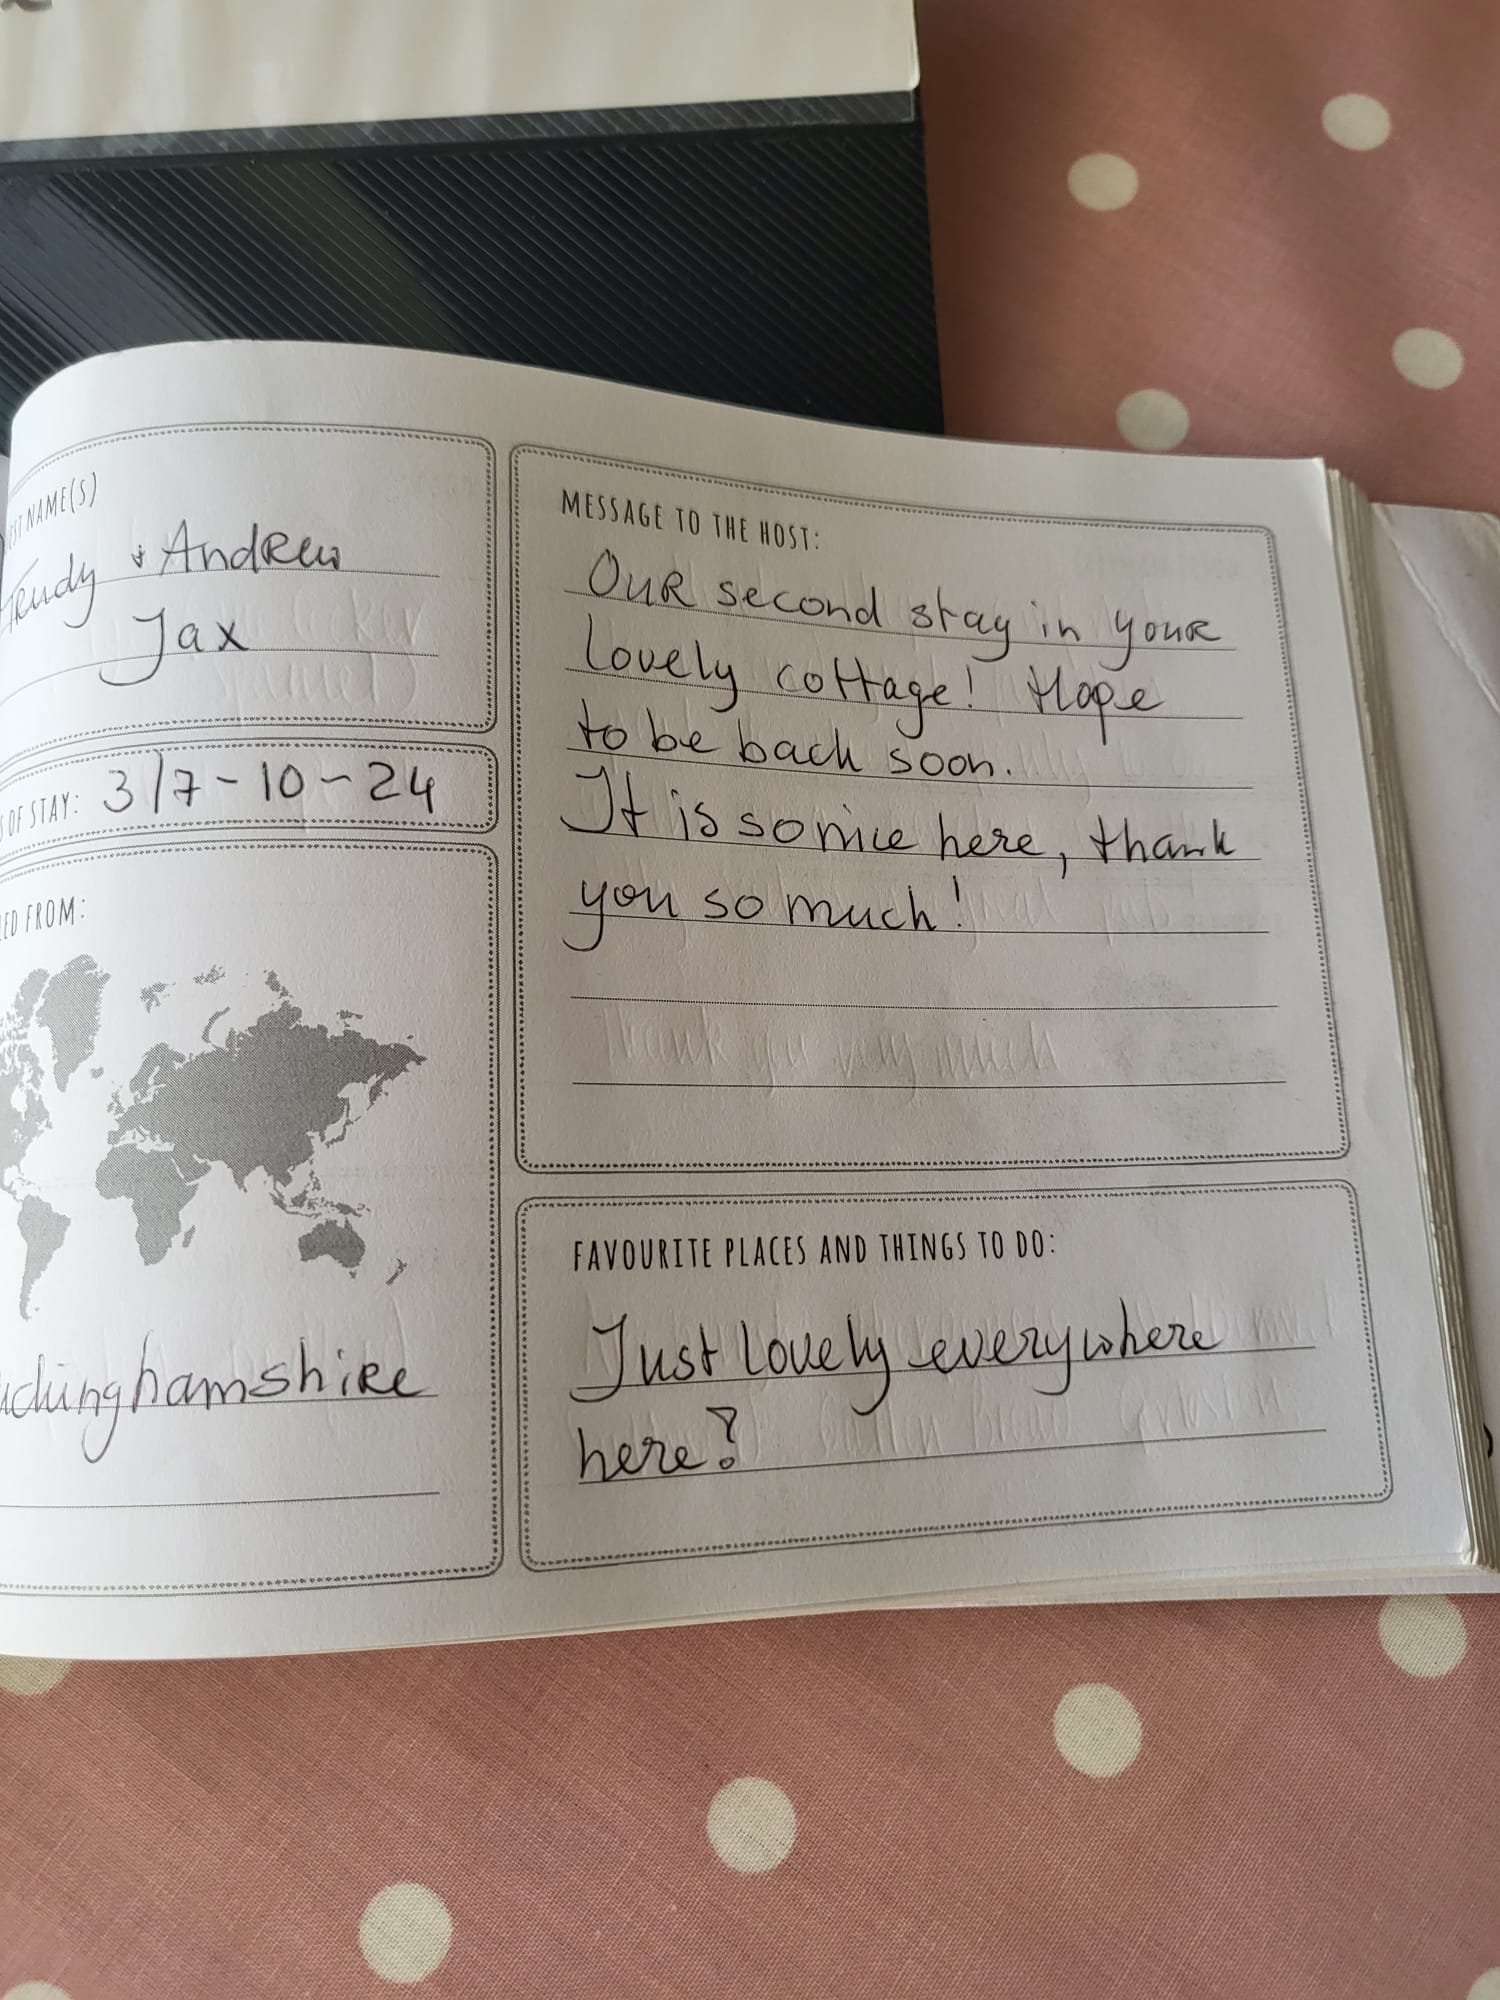 NAME(S)
Trudy & Andrew
Jax
OF STAY: 3/7-10-24
FROM:
uckinghamshire
MESSAGE TO THE HOST:
Our second stay in your
lovely cottage! Hope
to be back soon.
It is so nice here, thank
you so much!
Thank you very much
FAVOURITE PLACES AND THINGS TO DO:
Just lovely everywhere
here!